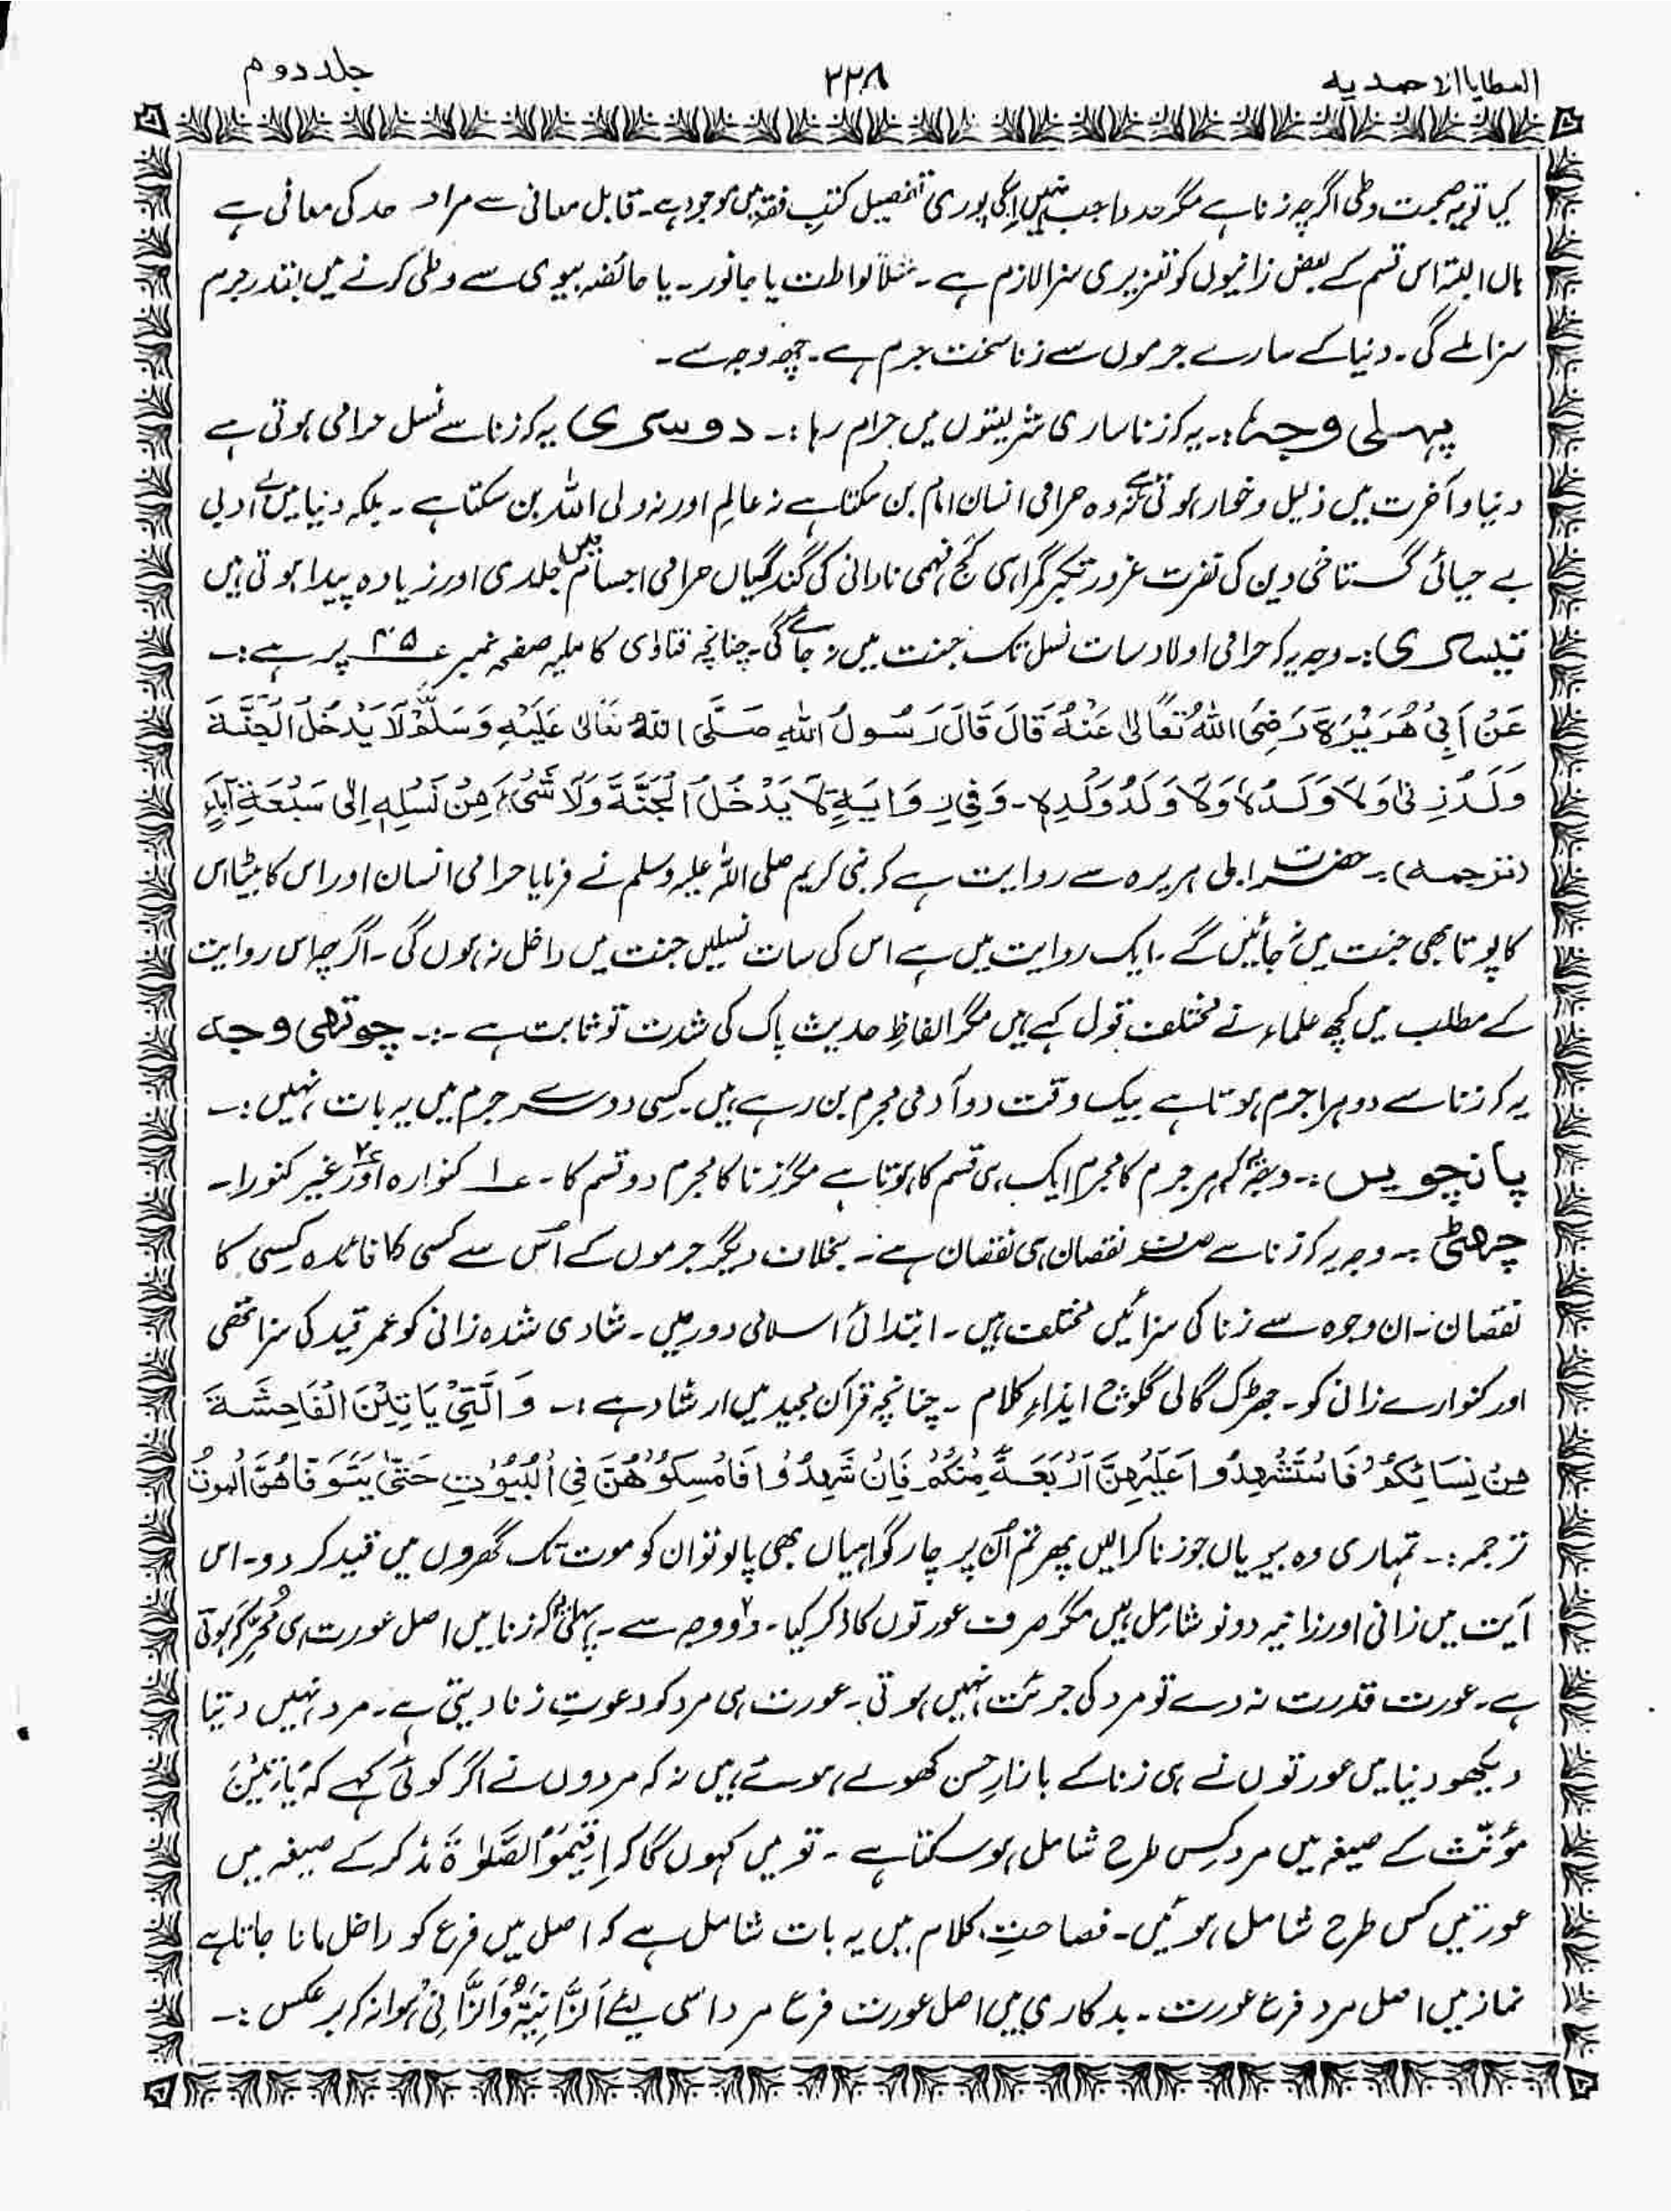 العطایا الاحمدیہ ۲۲۸ جلد دوم
کیا تو یہ صحبت وطی اگرچہ زنا ہے مگر حد واجب نہیں اسکی پوری تفصیل کتبِ فقہ میں موجود ہے۔ قابل معافی سے مراد حد کی معافی ہے
ہاں البتہ اس قسم کے بعض زانیوں کو تعزیری سزا لازم ہے۔ مثلاً لواطت یا جانور۔ یا حائضہ بیوی سے وطی کرنے میں بقدر جرم
سزا ملے گی۔ دنیا کے سارے جرموں سے زنا سخت جرم ہے۔ چھ وجہ سے۔
پہلی وجہ:۔ یہ کہ زنا ساری شریعتوں میں حرام رہا:۔ دوسری یہ کہ زنا سے نسل حرامی ہوتی ہے
دنیا و آخرت میں ذلیل و خوار ہوتی ہے کہ وہ حرامی انسان امام بن سکتا ہے نہ عالم اور نہ ولی اللہ بن سکتا ہے۔ بلکہ دنیا میں بے ادبی
بے حیائی گستاخی دین کی نفرت غرور تکبر گمراہی کج فہمی نادانی کی گندگیاں حرامی اجسام میں جلدی اور زیادہ پیدا ہوتی ہیں
تیسری:۔ وجہ یہ کہ حرامی اولاد سات نسل تک جنت میں نہ جائے گی۔ چنانچہ فتاوٰی کاملیہ صفحہ نمبر ۴۵ پر ہے:۔
عَنْ اَبِیْ هُرَیْرَةَ رَضِیَ اللهُ تَعَالٰی عَنْهُ قَالَ قَالَ رَسُولُ اللهِ صَلَّی اللهُ تَعَالٰی عَلَیْهِ وَسَلَّمَ لَا یَدْخُلُ الْجَنَّةَ
وَلَدُ زِنیٰ وَلَا وَلَدُهٗ وَلَا وَلَدُ وَلَدِهٖ۔ وَفِیْ رِوَایَةٍ لَا یَدْخُلُ الْجَنَّةَ وَلَا شَیْءٌ مِنْ نَسْلِهٖ اِلٰی سَبْعَةِ آبَاءٍ
(ترجمہ)۔ حضرت ابی ہریرہ سے روایت ہے کہ نبی کریم صلی اللہ علیہ وسلم نے فرمایا حرامی انسان اور اس کا بیٹا اس
کا پوتا بھی جنت میں نہ جائیں گے۔ ایک روایت میں ہے اس کی سات نسلیں جنت میں داخل نہ ہوں گی۔ اگرچہ اس روایت
کے مطلب میں کچھ علماء نے مختلف قول کہے ہیں مگر الفاظِ حدیث پاک کی شدت تو ثابت ہے:۔ چوتھی وجہ
یہ کہ زنا سے دوہرا جرم ہوتا ہے بیک وقت دو آدمی مجرم بن رہے ہیں۔ کسی دوسرے جرم میں یہ بات نہیں:۔
پانچویں:۔ وجہ یہ کہ ہر جرم کا مجرم ایک ہی قسم کا ہوتا ہے مگر زنا کا مجرم دو قسم کا۔ ۱ کنوارہ اور ۲ غیر کنورا۔
چھٹی:۔ وجہ یہ کہ زنا سے صرف نقصان ہی نقصان ہے۔ بخلاف دیگر جرموں کے اُس سے کسی کا فائدہ کسی کا
نقصان۔ ان وجوہ سے زنا کی سزائیں مختلف ہیں۔ ابتدائی اسلامی دور میں۔ شادی شدہ زانی کو عمر قید کی سزا تھی
اور کنوارے زانی کو۔ جھڑک گالی گلوچ ایذاءِ کلام۔ چنانچہ قرآن مجید میں ارشاد ہے:۔ وَ الّٰتِیْ یَاتِیْنَ الْفَاحِشَةَ
مِنْ نِسَائِکُمْ فَاسْتَشْهِدُوا عَلَیْهِنَّ اَرْبَعَةً مِنْکُمْ فَاِنْ شَهِدُوا فَامْسِکُوْهُنَّ فِی الْبُیُوْتِ حَتّٰی یَتَوَفَّاهُنَّ الْمَوتُ
ترجمہ:۔ تمہاری وہ بیویاں جو زنا کرالیں پھر تم اُن پر چار گواہیاں بھی پالو تو ان کو موت تک گھروں میں قید کر دو۔ اس
آیت میں زانی اور زانیہ دونو شامل ہیں مگر صرف عورتوں کا ذکر کیا۔ دو وجہ سے۔ پہلی یہ کہ زنا میں اصل عورت ہی مُحرِّک ہوتی
ہے۔ عورت قدرت نہ دے تو مرد کی جرئت نہیں ہوتی۔ عورت ہی مرد کو دعوتِ زنا دیتی ہے۔ مرد نہیں دیتا
دیکھو دنیا میں عورتوں نے ہی زنا کے بازارِ حسن کھولے ہوئے ہیں نہ کہ مردوں نے اگر کوئی کہے کہ یَاتِیْنَ
مؤنّث کے صیغہ میں مرد کِس طرح شامل ہو سکتا ہے۔ تو میں کہوں گا کہ اِقِیْمُوْ الصَّلوٰةَ مذکر کے صیغہ میں
عورتیں کس طرح شامل ہوئیں۔ فصاحتِ کلام میں یہ بات شامل ہے کہ اصل میں فرع کو داخل مانا جاتا ہے
نماز میں اصل مرد فرع عورت۔ بدکاری میں اصل عورت فرع مرد اسی لیئے اَلزَّانِیَةُ وَالزَّانِیْ ہوا نہ کہ برعکس:۔